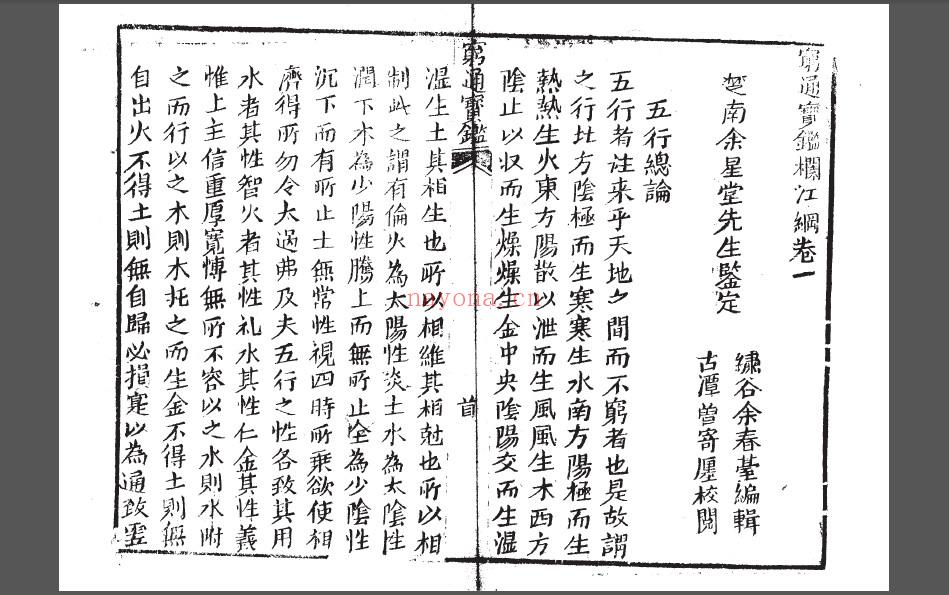 窮通寶鑑欄江綱卷一
楚南余星堂先生鑒定
繡谷余春臺編輯
古潭曾寄厘校閱
五行總論
五行者往来乎天地之間而不窮者也是故謂
之行北方陰極而生寒寒生水南方陽極而生
熱熱生火東方陽散以泄而生風風生木西方
陰止以収而生燥燥生金中央陰陽交而生濕
窮通寶鑑
首
濕生土其相生也所以相維其相尅也所以相
制此之謂有倫火為太陽性炎土水為太陰性
潤下木為少陽性騰上而無所止金為少陰性
沉下而有所止土無常性視四時所乗欲使相
濟得所勿令太過弗及夫五行之性各致其用
水者其性智火者其性礼水其性仁金其性義
惟上主信重厚寬愽無所不容以之水則水附
之而行以之木則木托之而生金不得土則無
自出火不得土則無自歸必損寔以為通致虚
nayona.cn